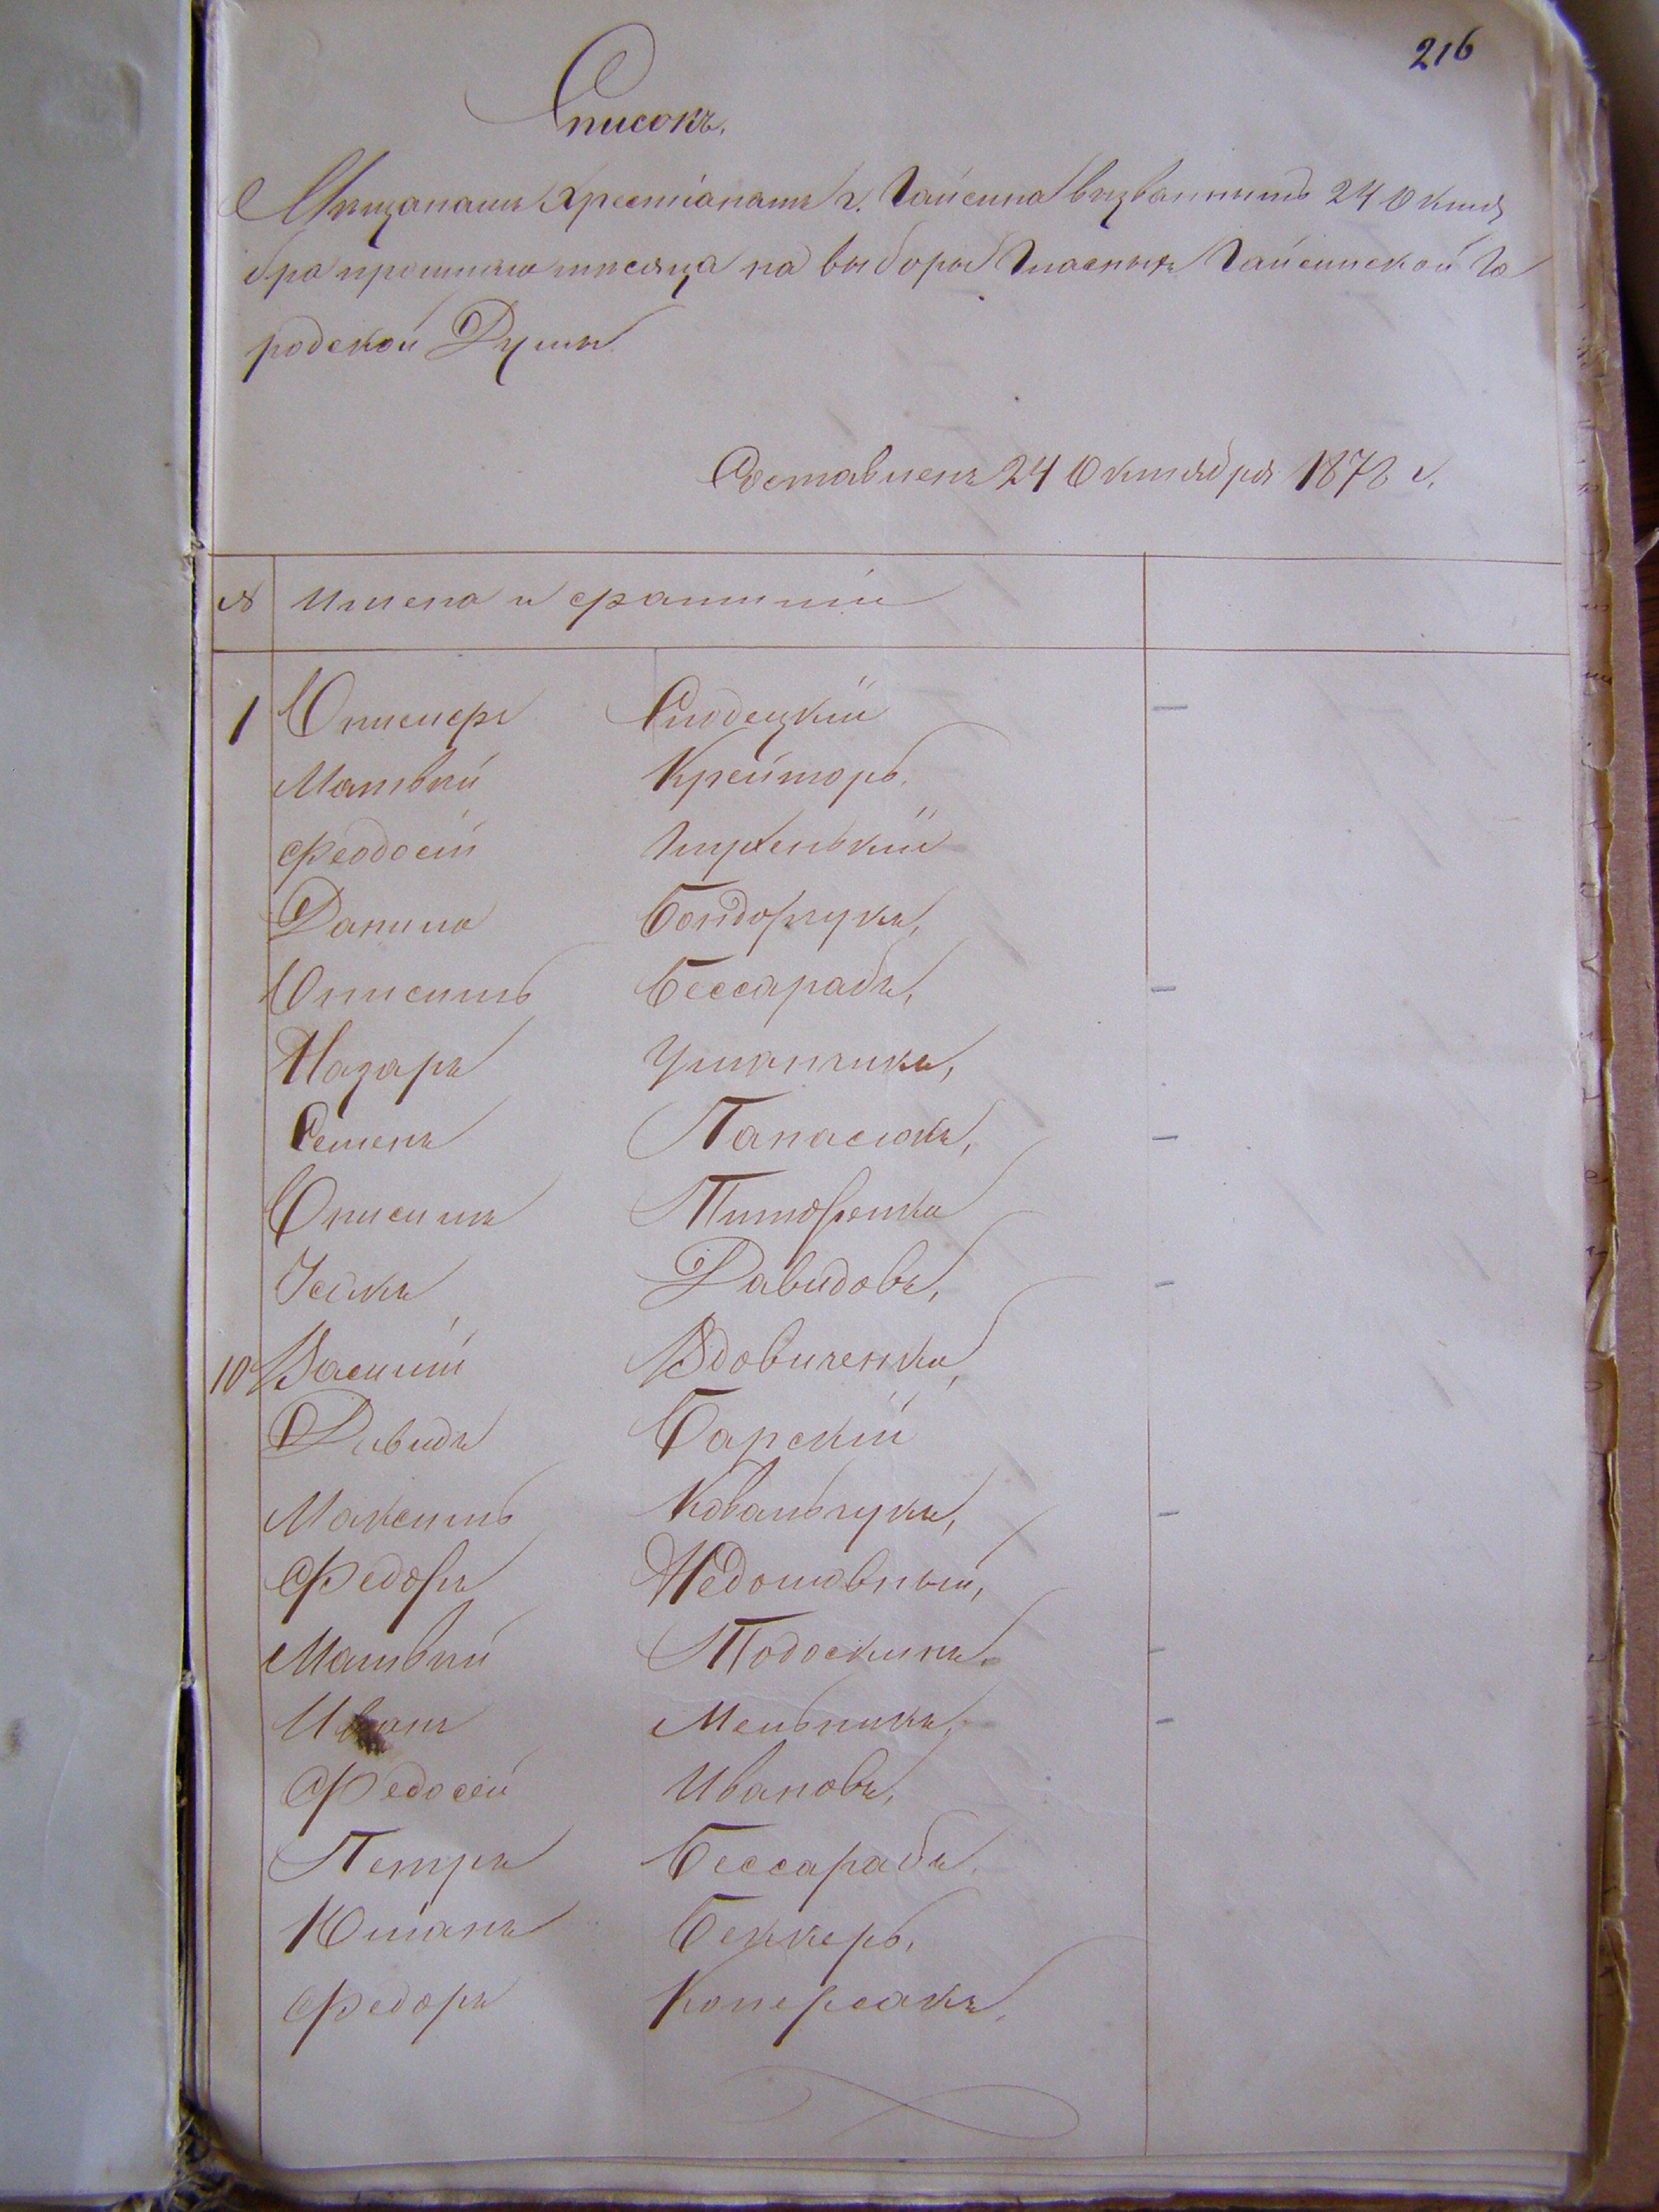 216
Списокъ.
Мѣщанамъ Христіанамъ г. Гайсина вызваннымъ 24 Октя
бра прошлаго мѣсяца на выборы Гласныхъ Гайсинской Го
родской Думы
Составленъ 24 Октября 1878 г.
№ Имена и фамиліи
1 Онисифръ Слободецкій
Матвѣй Крейторъ.
Феодосій
Данило Бондорчукъ,
Онисимъ Бессарабъ,
Назаръ Уманчикъ,
Семенъ Панасюкъ,
Онисимъ Тимофенко
Исакъ Давидовъ,
10 Василій Вдовиченко,
Давидъ Барскій
Максимъ Ковальчукъ,
Федоръ Недошовный,
Матвѣй Тодоскинъ.
Иванъ Мельникъ,
Федосей Ивановъ,
Петръ Бессарабъ.
Юліанъ Беккеръ,
Федоръ Коперсакъ,